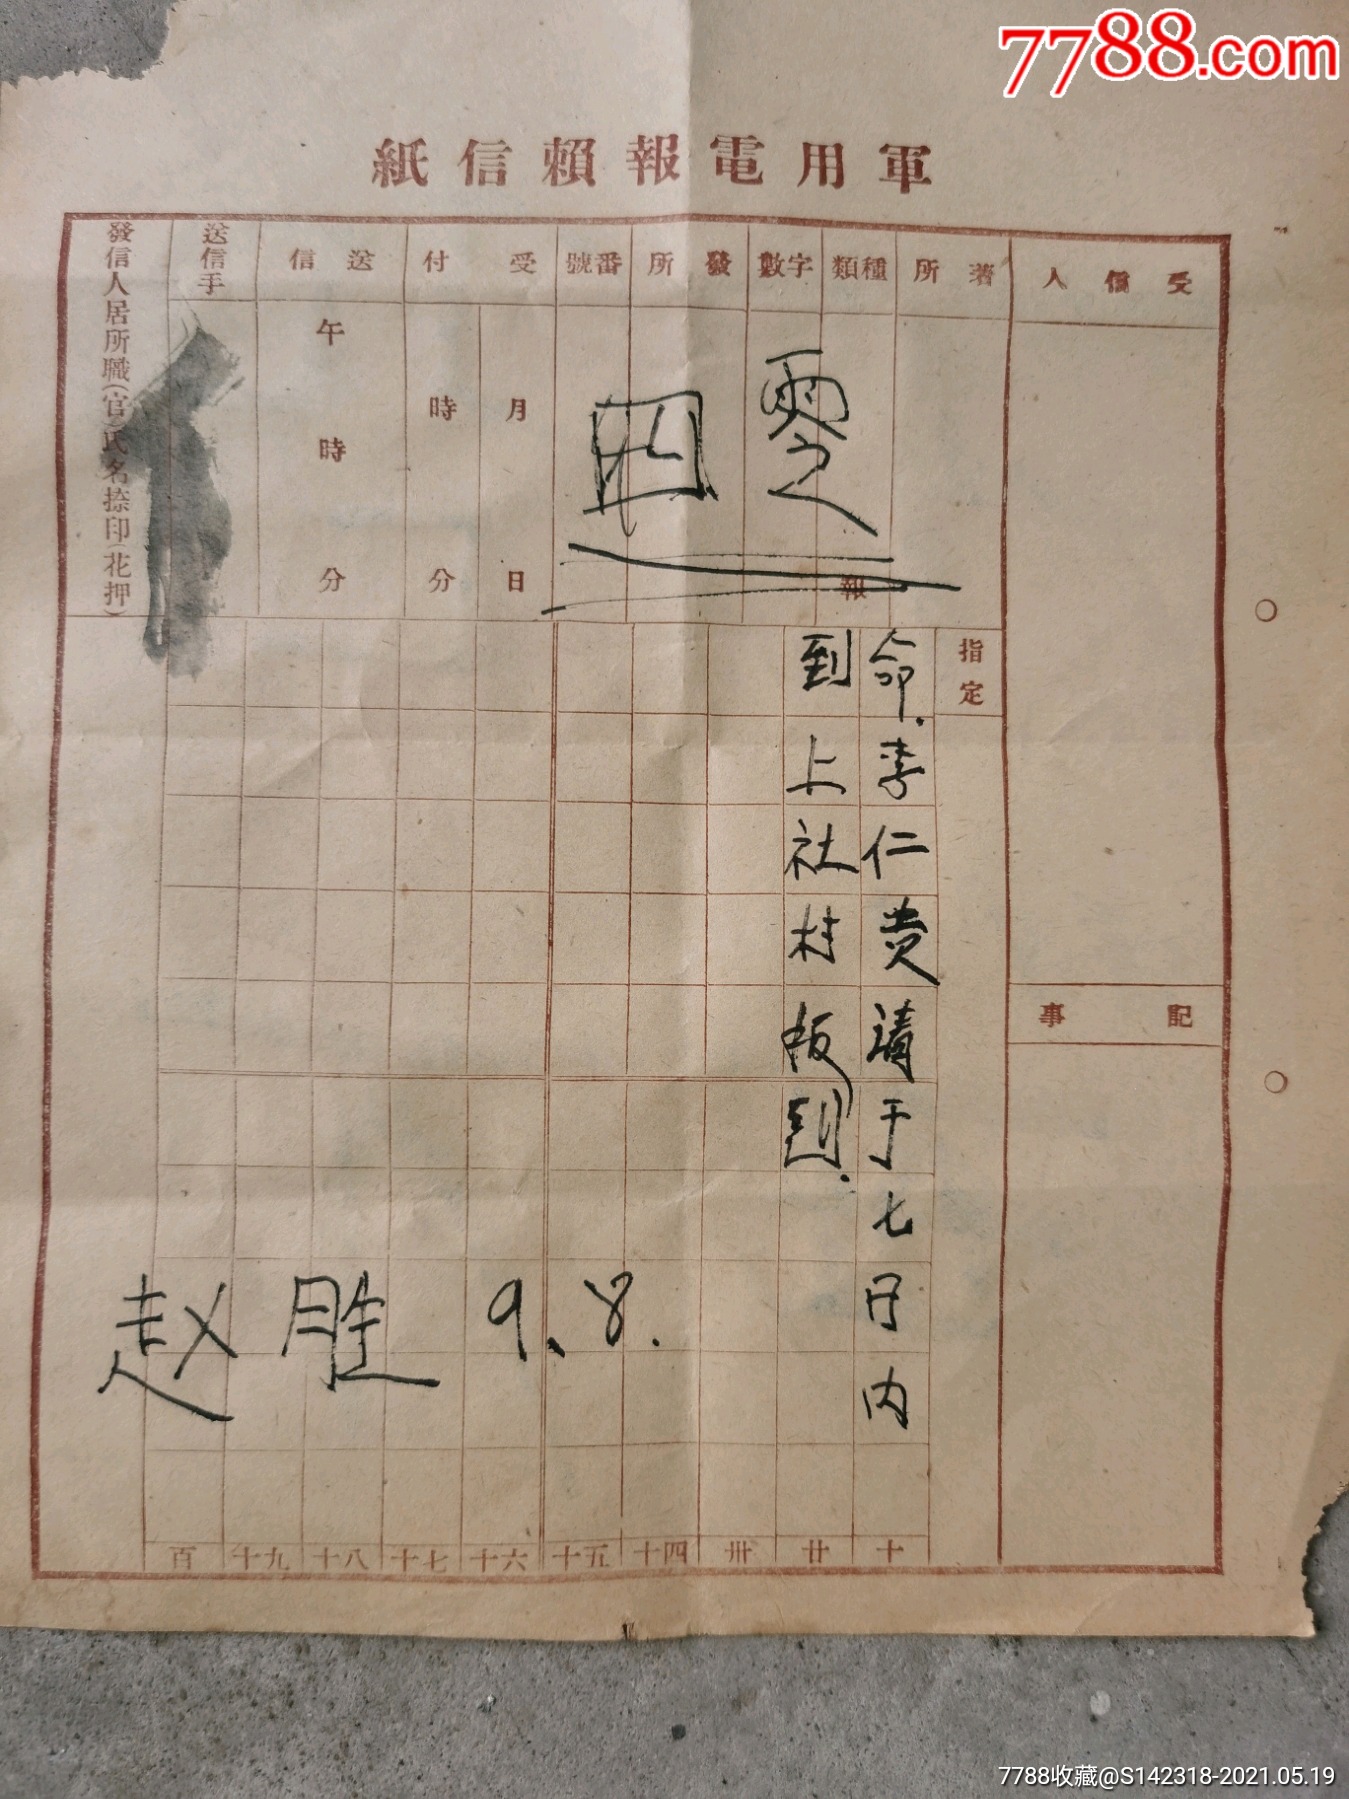 7788.com
軍用電報賴信紙
受信人
著所
種類
字數
發所
番號
受付
送信
送信手
發信人居所職(官)氏名捺印(花押)
月日
時分
午時分
報
指定
記事
命.李仁贵请于七日内
到上社村报到.
赵胜 9.8.
十
廿
卅
四十
五十
六十
七十
八十
九十
百
7788收藏@S142318-2021.05.19